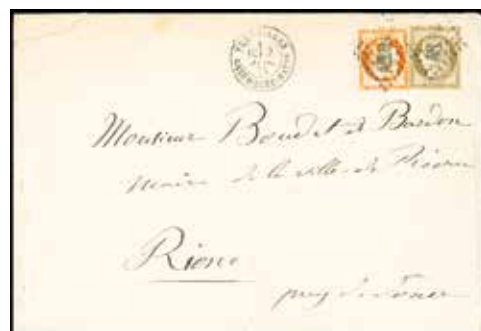 Monsieur Boudet de Bardon
maire de la ville de Riom
Riom
puy de dome